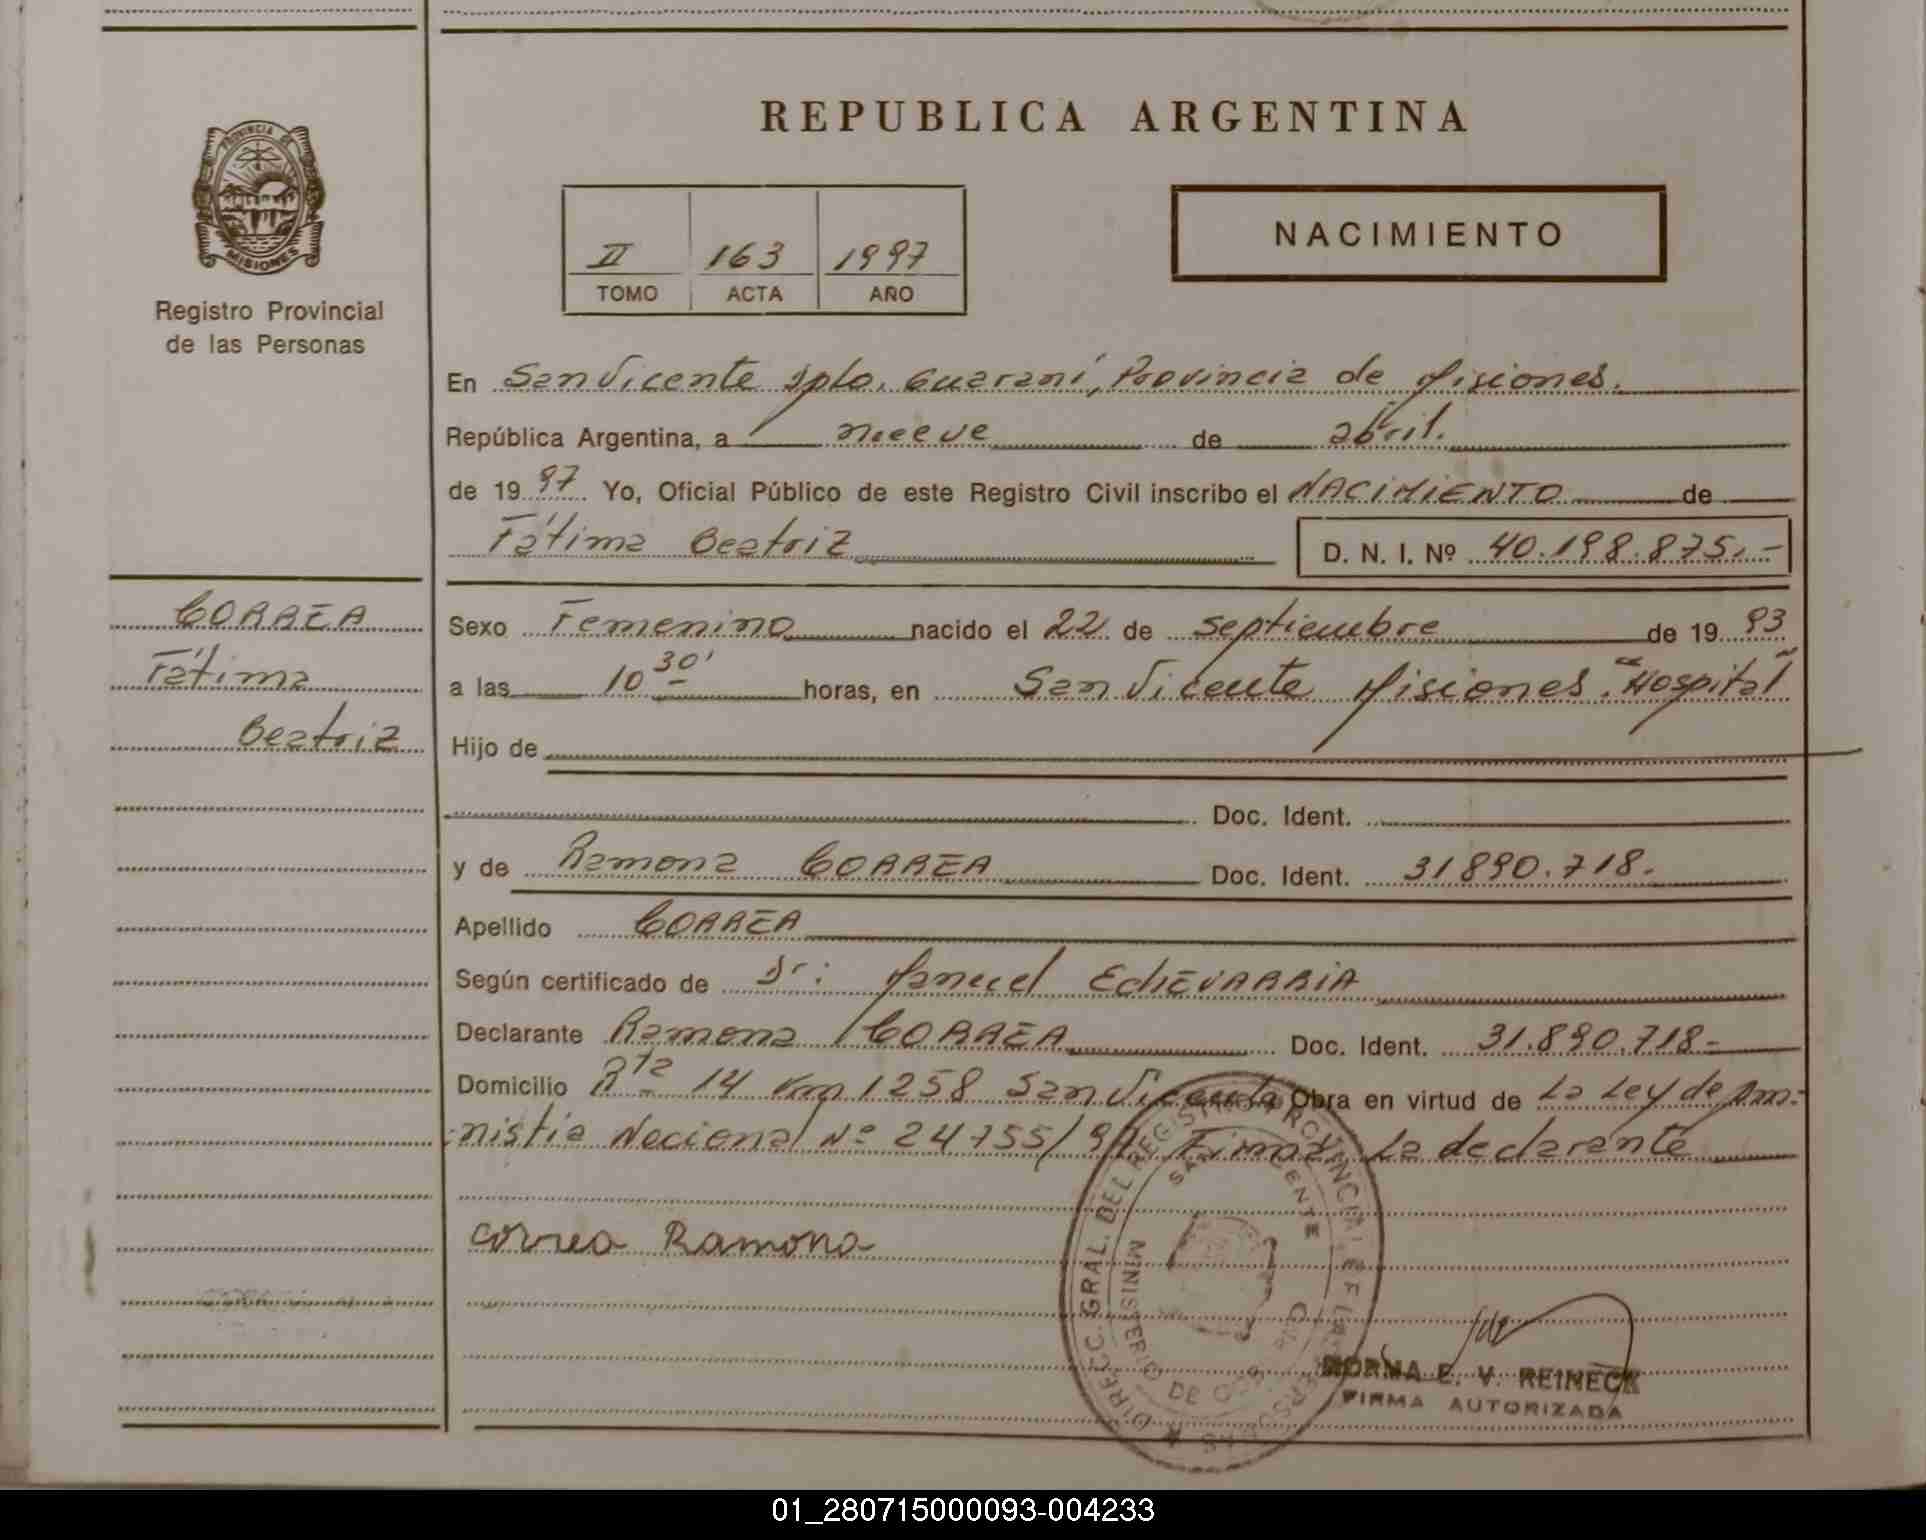 REPUBLICA ARGENTINA
PROVINCIA DE
MISIONES
Registro Provincial
de las Personas
NACIMIENTO
II 163 1997
TOMO ACTA AÑO
En San Vicente Dpto. Guaraní, Provincia de Misiones.
República Argentina, a nueve de abril.
de 1997 Yo, Oficial Público de este Registro Civil inscribo el NACIMIENTO de
Fátima Beatriz D. N. I. Nº 40.198.875.-
CORREA
Fátima
Beatriz
Sexo Femenino nacido el 22 de septiembre de 1993
a las 10 30' horas, en San Vicente Misiones. "Hospital"
Hijo de
Doc. Ident.
y de Ramona CORREA Doc. Ident. 31890.718.
Apellido CORREA
Según certificado de Dr: Manuel EchEVARRIA
Declarante Ramona CORREA Doc. Ident. 31.890.718-
Domicilio Rta 14 Km 1258 San Vicente Obra en virtud de La Ley de Am-
nistia Nacional Nº 24755/97 Firma: La declarante
Correa Ramona
DIRECC. GRAL. DEL REGISTRO PROVINCIAL
SAN VICENTE
MINISTERIO DE
NORMA E. V. REINECK
FIRMA AUTORIZADA
01_280715000093-004233